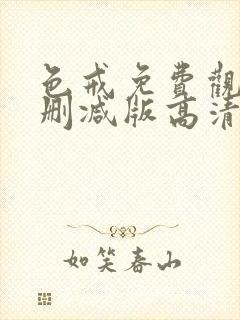 色戒免費觀
刪减版高清
如笑春山